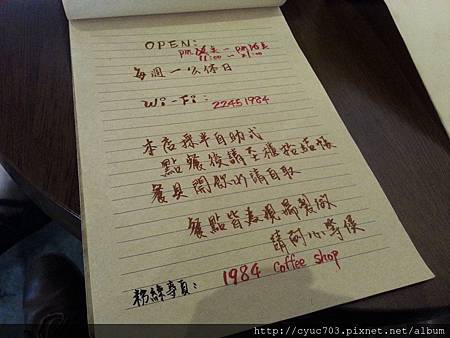 OPEN:
11:00 - 21:00
每週一公休日
Wi-Fi: 22451984
本店採半自助式
點餐後請至櫃抬結帳
餐具開飲水請自取
餐點皆為現點製做
請耐心等候
粉絲專頁: 1984 coffee shop
http://cyuc703.pixnet.net/album